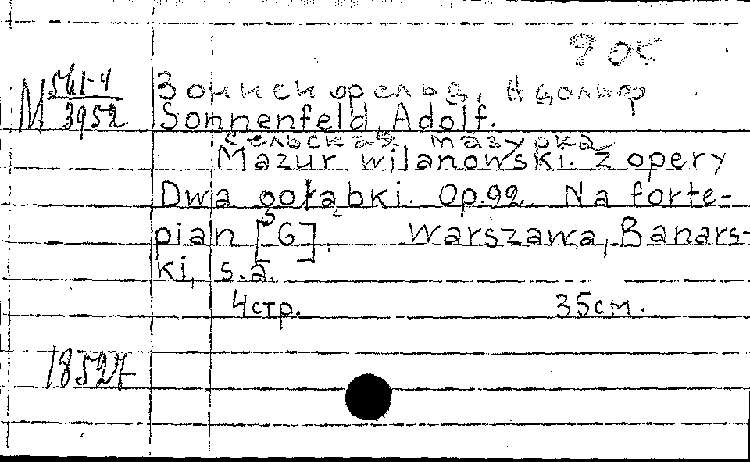 9 ок
М 561-4/3952
Зонненфельд, Адольф
Sonnenfeld, Adolf.
Сельская мазурка
Mazur wilanowski. z opery
Dwa gołąbki. Op.92. Na forte-
pian [G]. Warszawa, Banars-
ki, s.a.
4 стр. 35 см.
18527